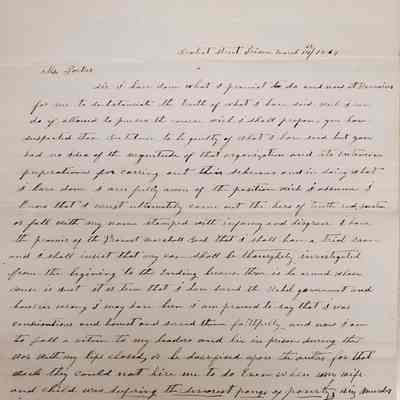 Street Prison March 14th/1864
Mr. Porter
Sir I have done what I promist to do and now it Remains
for me to substantiate the truth of what I have said wich I can
do if allowed to pursue the course wich I shall propose you have
suspected these to be guilty of what I have said but you
had no idea of the magnitude of that organization and its
preparations for carring out this scheams and in doing what
I have done I am fully aware of the position wich I assume I
know that I must ultimately come out the hero of truth and justice
or fall with my name stamped with infamy and disgrace I have
the promis of the Provost marshall that I shall have a trial soon
and I shall insist that my case shall be thoroughly investigated
from the beginning to the
is it at him that I have the government and
however wrong I may have been I am proud to say that I was
consientious and honest and served them faithfuly, and now I am
to fall a victim to my leaders and lie in prison during the
war with my lips closed or be sacrificed upon the altar for that
wich they could not hire me to do Even when my wife
and child was sufering the severest pangs of poverty